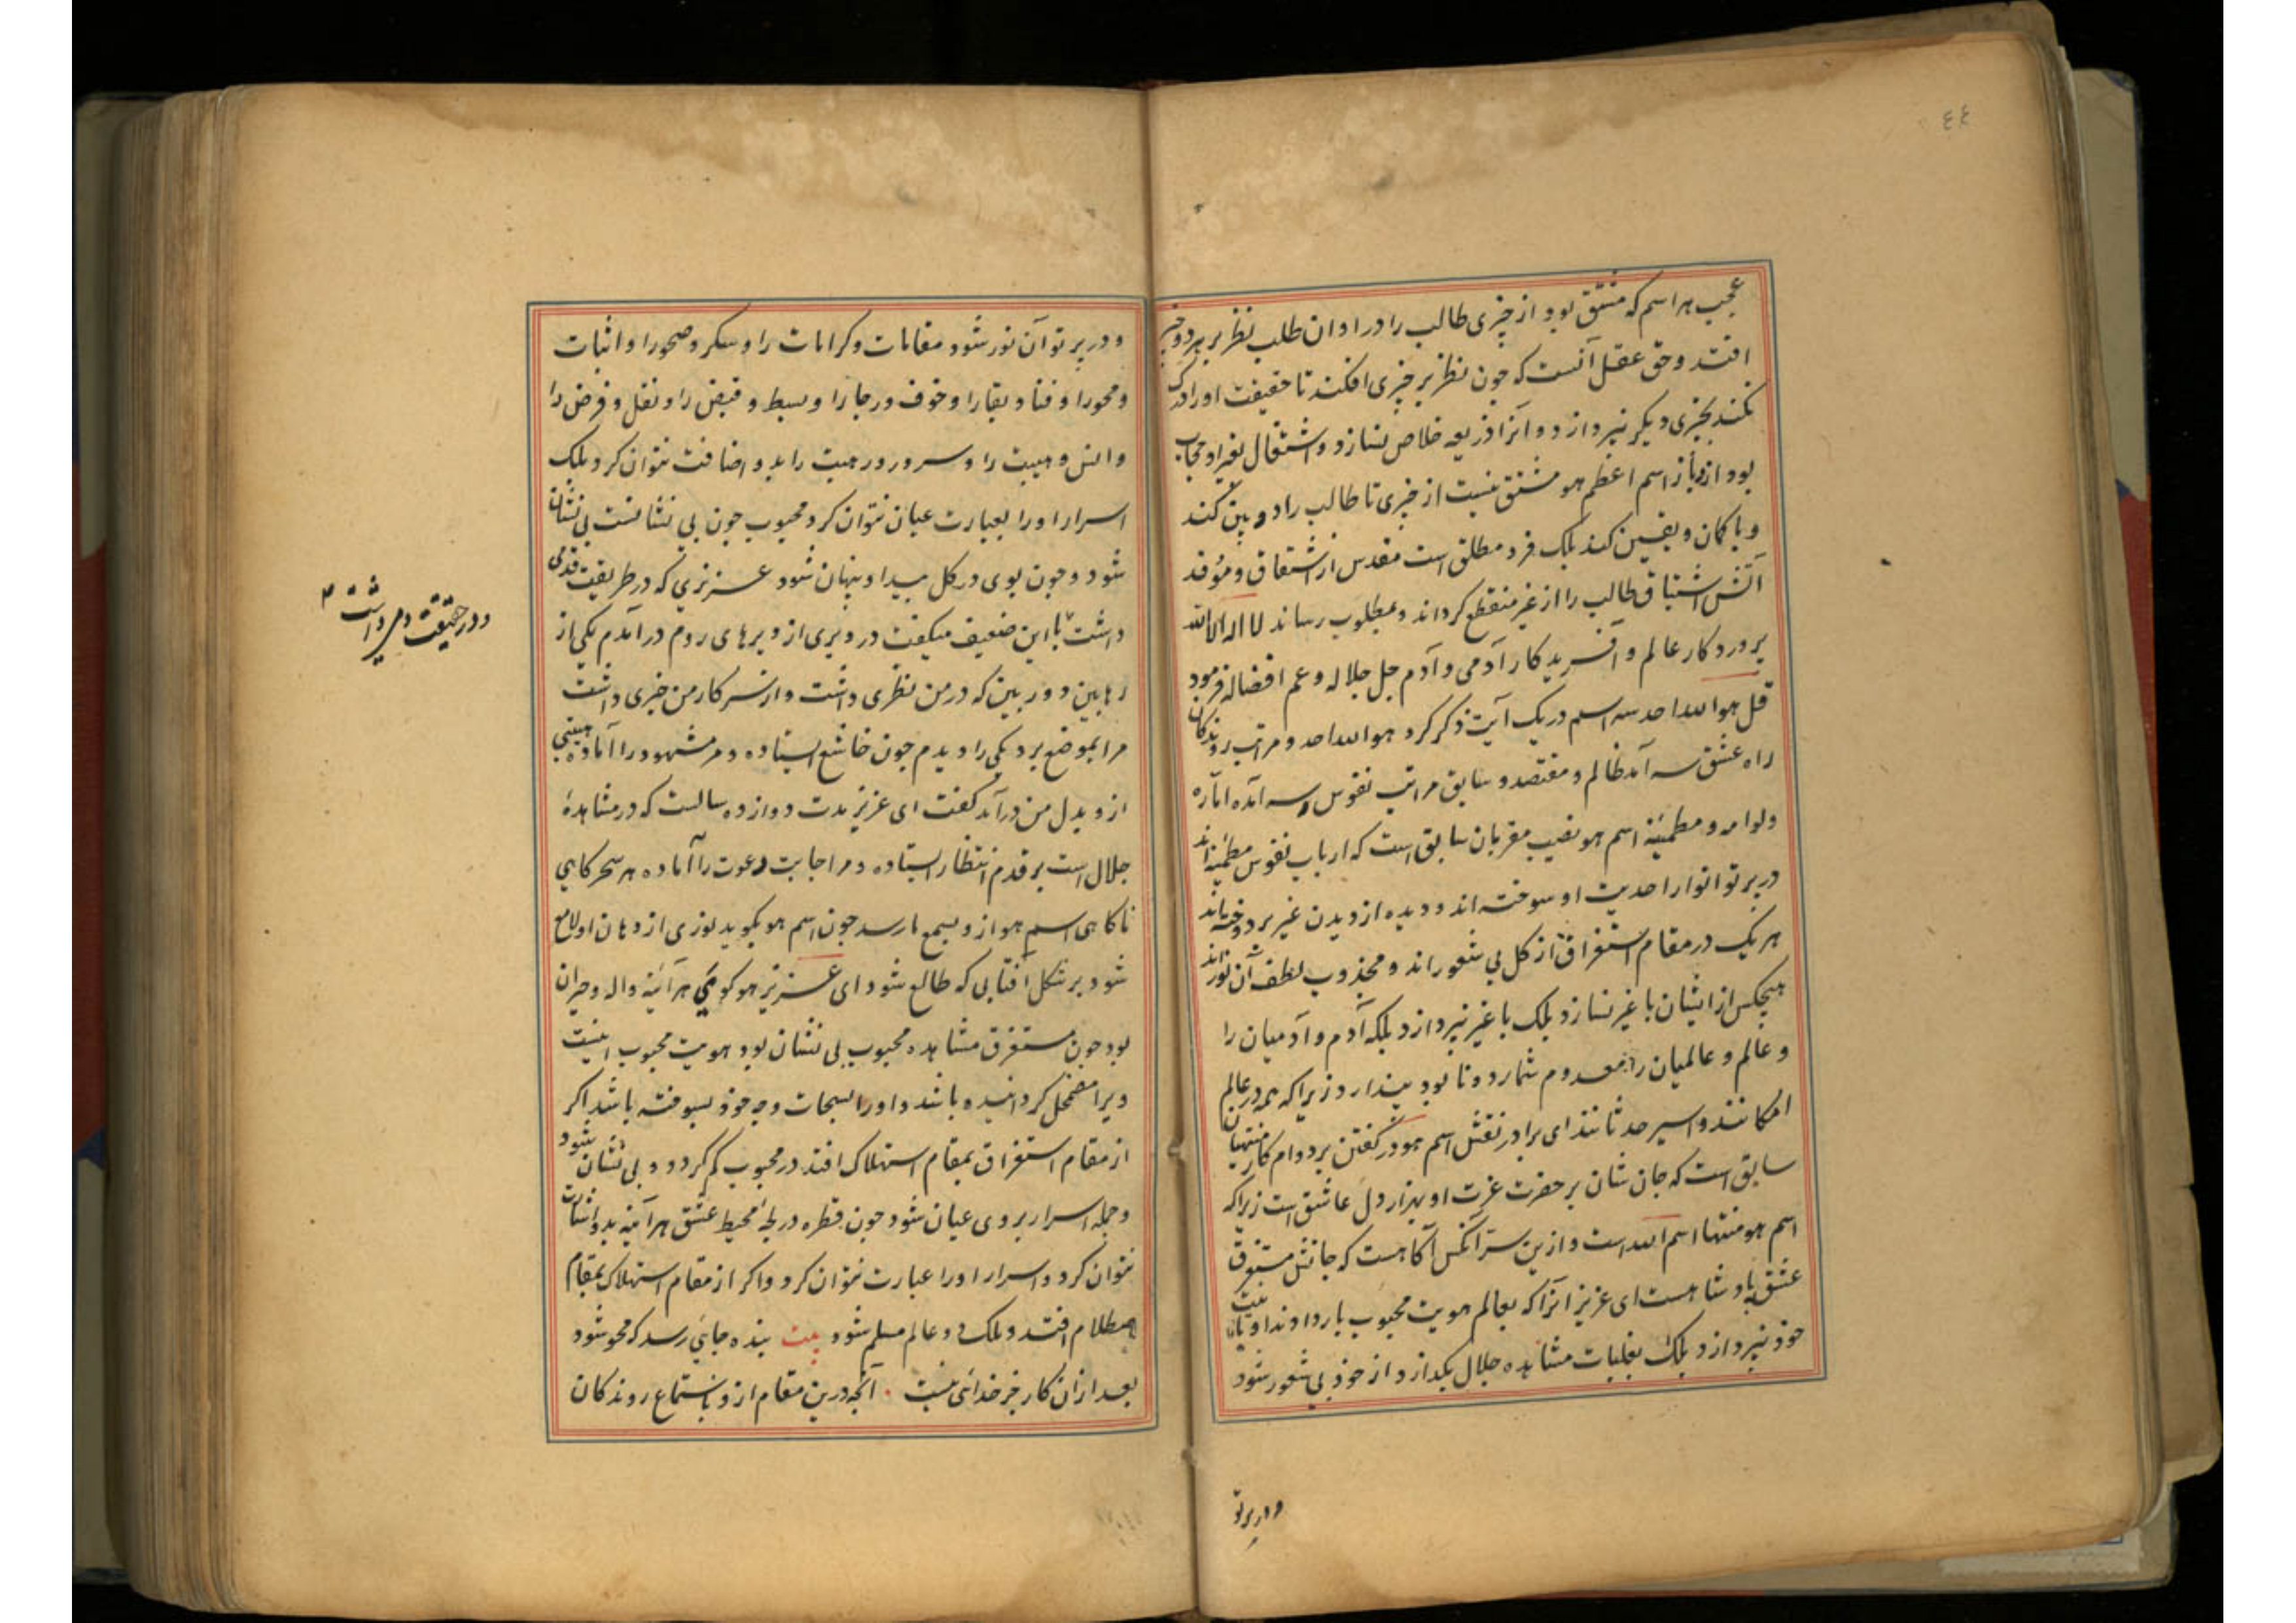 ٤٤
عجب هر اسم که مشتق بود از چیزی طالب را در اوان طلب نظر بر هر دو چیز
افتد و حق عقل آنست که چون نظر بر چیزی افکند تا حقیقت او ادراک
نکند بچیزی دیگر نپردازد و آنرا ذریعه خلاص نسازد و اشتغال بغیر او حجاب
بود از باز اسم اعظم هو مشتق نیست از چیزی تا طالب را دو بین کند
و با کمان و یقین کند بلک فرد مطلق است مقدس از اشتقاق و موقد
آتش اشتیاق طالب را از غیر منقطع کرداند و بمطلوب رساند لا اله الا الله
پروردکار عالم و آفریدکار آدمی و آدم جل جلاله و عم افضاله فرمود
قل هو الله احد سه اسم در یک آیت ذکر کرد هو الله احد و مراتب روندکان
راه عشق سه آمد ظالم و مقتصد و سابق مراتب نفوس سه آمده اماره
و لوامه و مطمئنه اسم هو نصیب مقربان سابق است که ارباب نفوس مطمئنه اند
در پرتو انوار احدیت او سوخته اند و دیده از دیدن غیر بر دوخته اند
هر یک در مقام استغراق از کل بی شعور اند و مجذوب لطف آن نور اند
هیچکس از ایشان با غیر نسازد بلک با غیر نپردازد بلکه آدم و آدمیان را
و عالم و عالمیان را معدوم شمارد و نابود پندارد زیرا که همه در عالم
امکانند و اسیر حدثانند ای برادر نقش اسم هو در کفتن بر دوام کار منتهیان
سابق است که جان شان بر حضرت عزت او بهزار دل عاشق است زیرا که
اسم هو منتها اسم الله است و ازین سر آنکس آکاهست که جانش مستغرق
عشق پادشاهست ای عزیز آنرا که بعالم هویت محبوب بار دادند او
خود نپردازد بلک بغلبات مشاهده جلال بکدازد و از خود بی شعور شود
و در پرتو
و در پرتو آن نور شود مقامات و کرامات را و سکر و صحو را و اثبات
و محو را و فنا و بقا را و خوف و رجا را و بسط و قبض را و نفل و فرض را
و انس و هیبت را و سرور و رهبت را بدو اضافت نتوان کرد بلک
اسرار او را بعبارت عیان نتوان کرد محبوب چون بی نشانست بی نشان
شود و چون بوی در کل پیدا و پنهان شود عزیزی که در طریقت قدمی
داشت با این ضعیف میکفت در دیری از دیرهای روم در آمدم یکی از
رهابین دوربین که در من نظری داشت و از سر کار من خبری داشت
مرا بموضع برد یکی را دیدم چون خاشع ایستاده و مر شهود را آماده هیبتی
ازو بدل من در آمد کفت ای عزیز مدت دوازده سالست که در مشاهده
جلال است بر قدم انتظار ایستاده و مر اجابت دعوت را آماده هر سحرکاهی
ناکاهی اسم هو ازو بسمع ما رسد چون اسم هو بکوید نوری از دهان او لامع
شود بر شکل آفتابی که طالع شود ای عزیز هو کوی هر آئینه واله و حیران
بود چون مستغرق مشاهده محبوب بی نشان بود هویت محبوب انیت
ویرا مضمحل کردانیده باشد و او را بسبحات وجه خود بسوخته باشد اکر
از مقام استغراق بمقام استهلاک افتد در محبوب کم کردد و بی نشان شود
و جمله اسرار بر وی عیان شود چون قطره در لجه محیط عشق هر آینه بدو اشارت
نتوان کرد و اسرار او را عبارت نتوان کرد و اکر از مقام استهلاک بمقام
اصطلام افتد و ملک دو عالم مسلم شود بیت بنده جائی رسد که محو شود
بعد ازان کار جز خدائی نیست آنچه درین مقام ازو باستماع روندکان
و در حقیقت دمی داشت